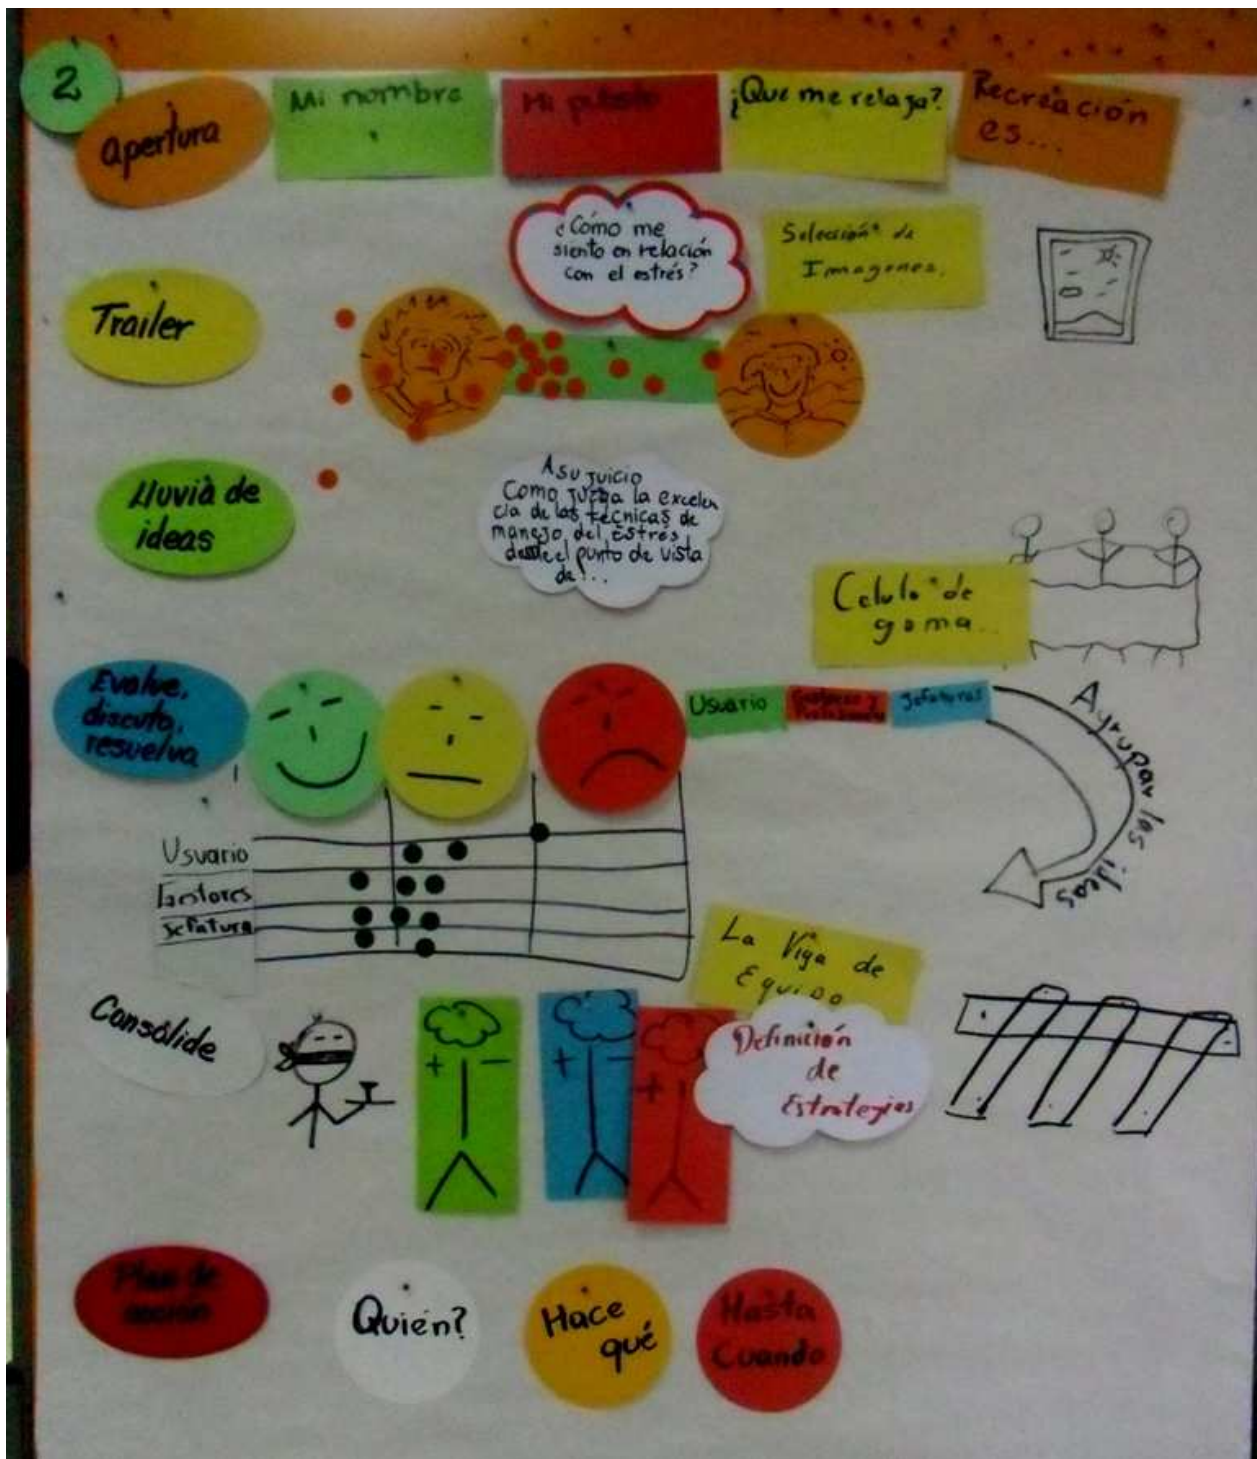 2
Apertura
Mi nombre
Mi puesto
¿Que me relaja?
Recreación
es...
¿Cómo me
siento en relación
con el estrés?
Selección de
Imagenes.
Trailer
Lluvia de
ideas
A su juicio
Como juzga la excelen
cia de las técnicas de
manejo del Estrés
desde el punto de vista
de:..
Celula de
goma...
Evalue,
discuta,
resuelva
Usuario
Jefaturas
Agrupar las ideas
Usuario
Gestores
Jefatura
La Viga de
Equipo
Consólide
+ -
+ -
+
Definición
de
Estrategias
Plan de
acción
Quién?
Hace
qué
Hasta
Cuando